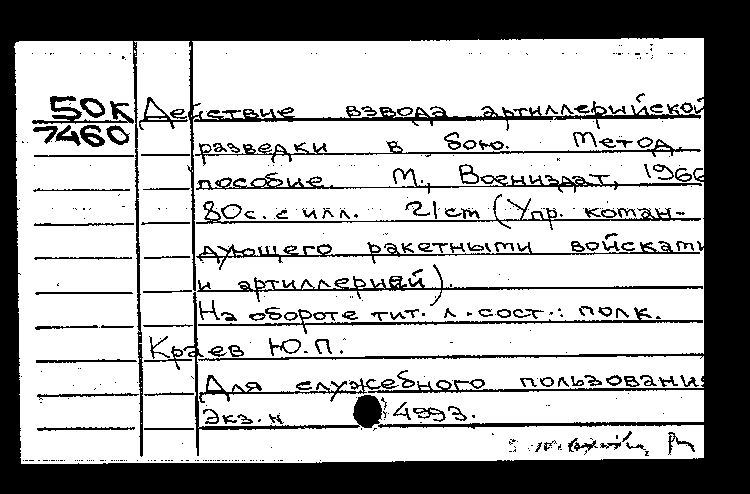 50К Действие взвода артиллерийской
7460 разведки в бою. Метод.
пособие. М., Воениздат, 1966
80с. с илл. 21 cm (Упр. коман-
дующего ракетными войсками
и артиллерией).
На обороте тит. л. сост.: полк.
Краев Ю.П.
Для служебного пользования
Экз. н 4893.